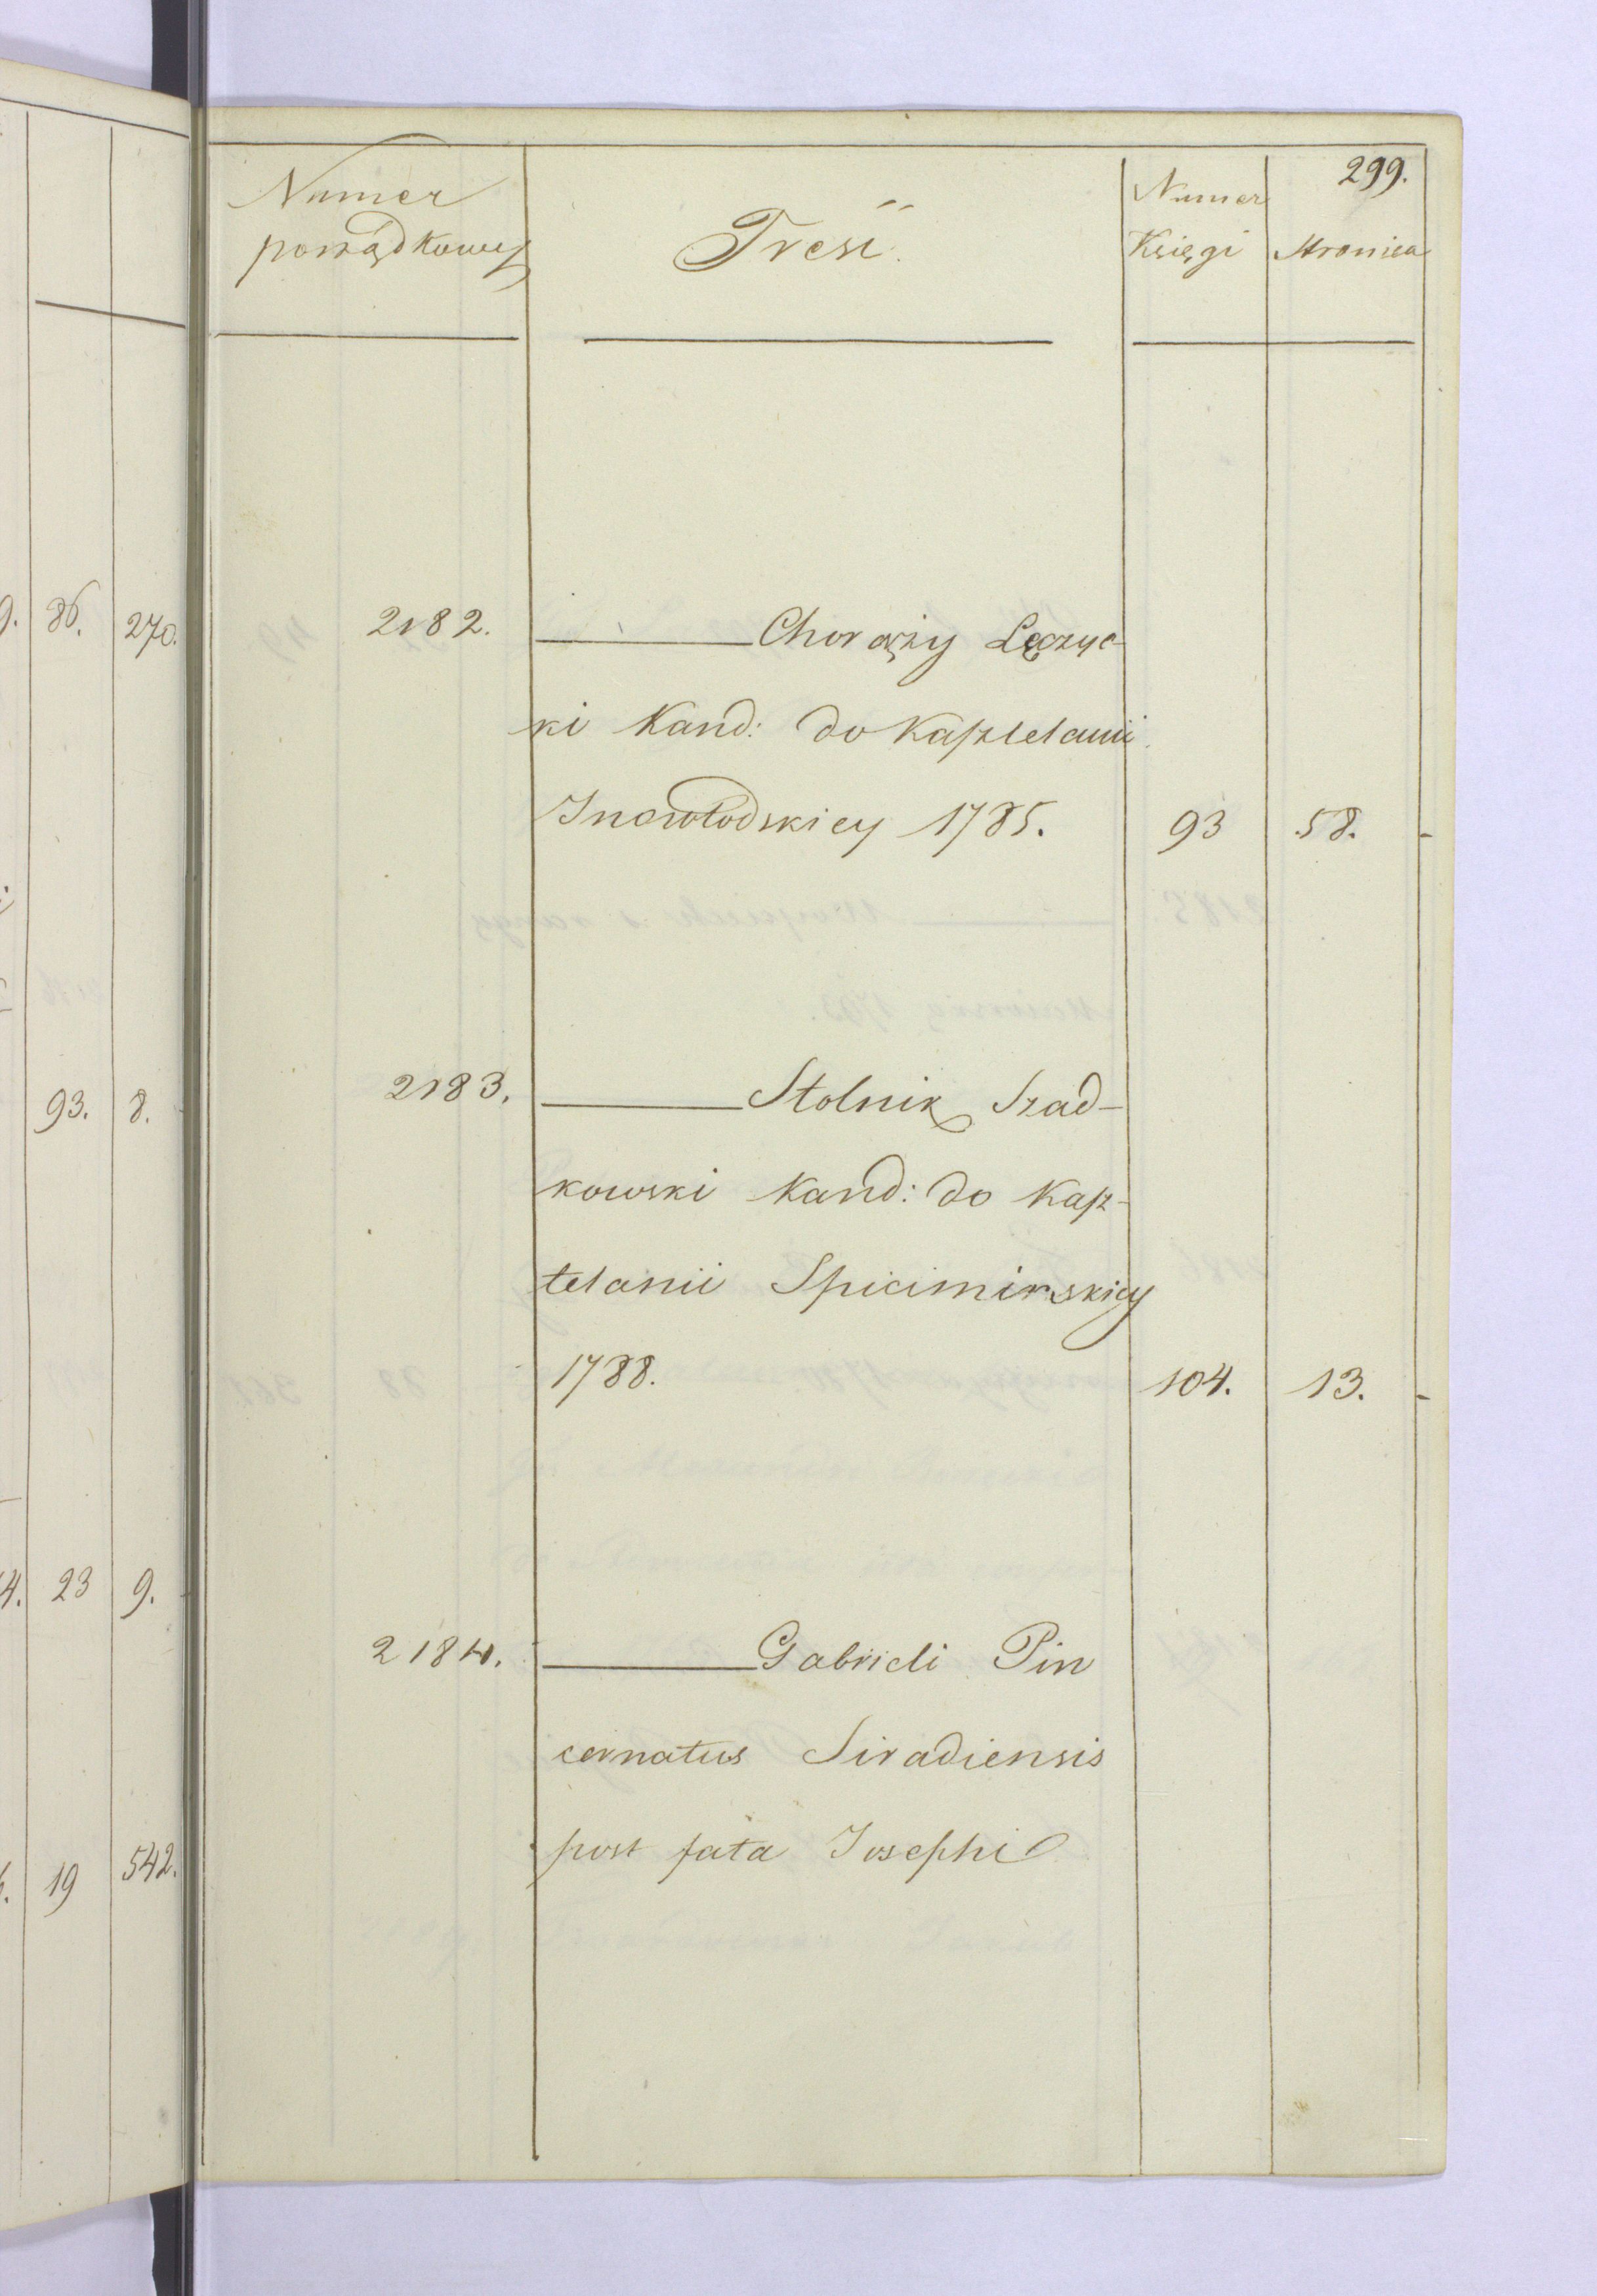 299.
Numer porządkowy
Treść.
Numer Księgi
Stronica
9. 86. 270.
93. 8.
4. 23 9.
19 542.
2182. Chorąży Łęczyc-
ki Kand: do Kasztelanii
Inowłodskiey 1785. 93 58.
2183. Stolnik Szad-
kowski Kand: do Kasz-
telanii Spicimirskiey
1788. 104. 13.
2184. Gabrieli Pin
cernatus Siradiensis
post fata Josephi